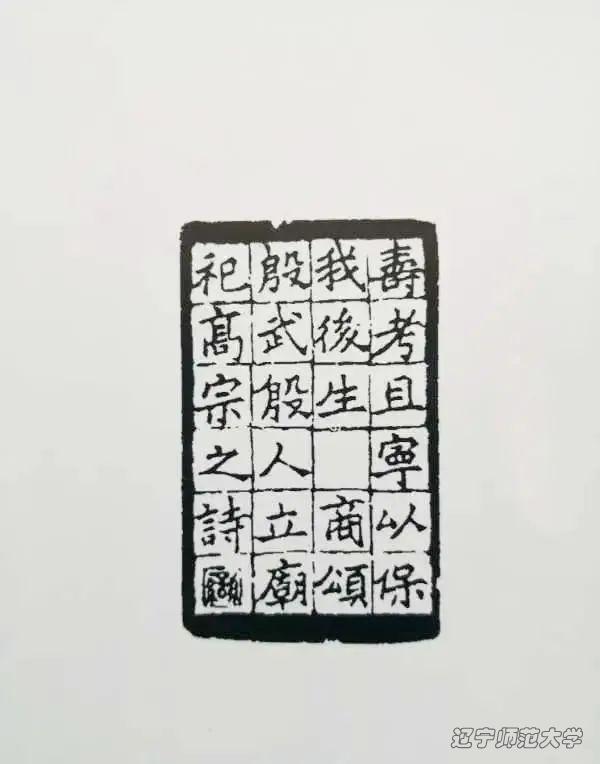 壽考且寧以保
我後生 商頌
殷武殷人立廟
祀髙宗之詩
辽宁师范大学